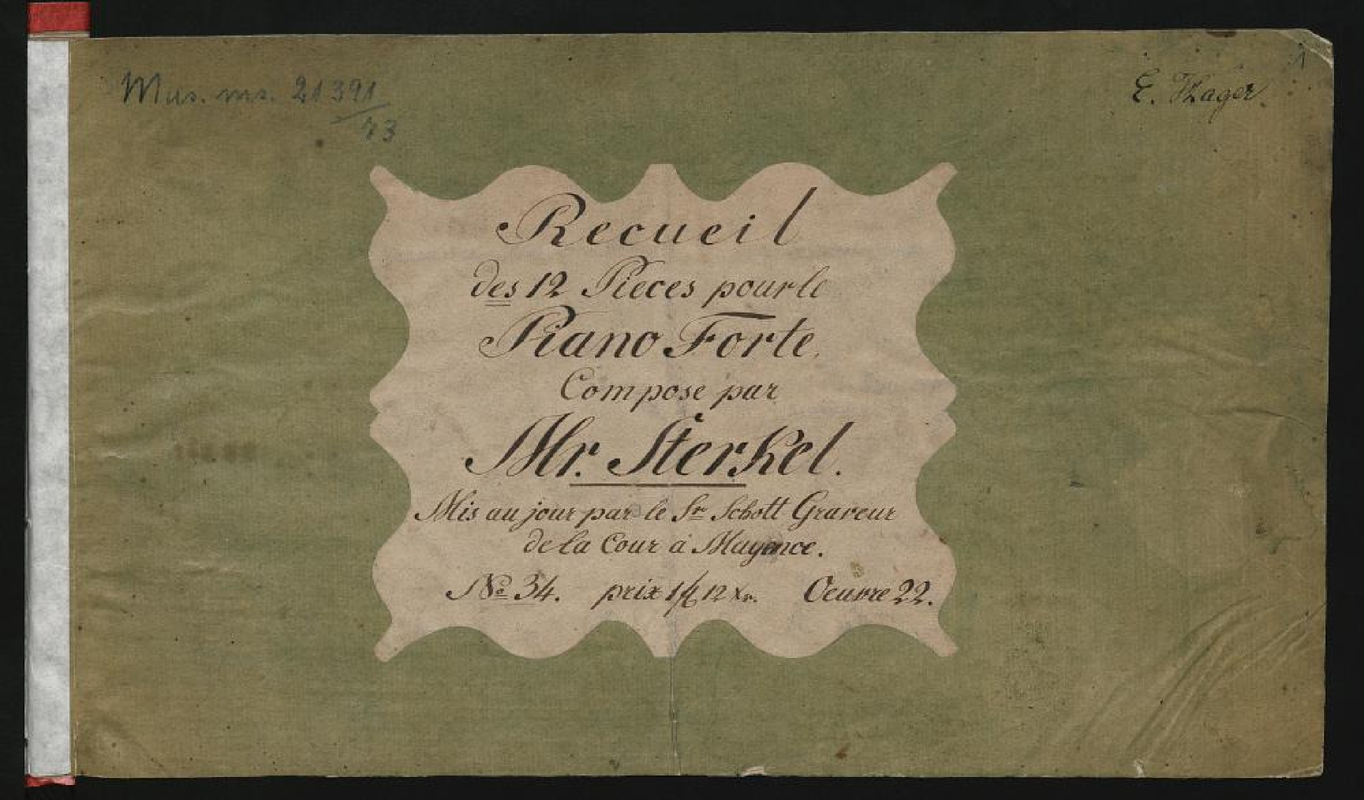 Mus. ms. 21391
/73
1
Recueil
des 12 Pieces pour le
Piano Forte.
Compose par
Mr. Sterkel.
Mis au jour par le Sr. Schott Graveur
de la Cour à Mayence.
No 34. prix 1 fl 12 Xr. Oeuvre 22.